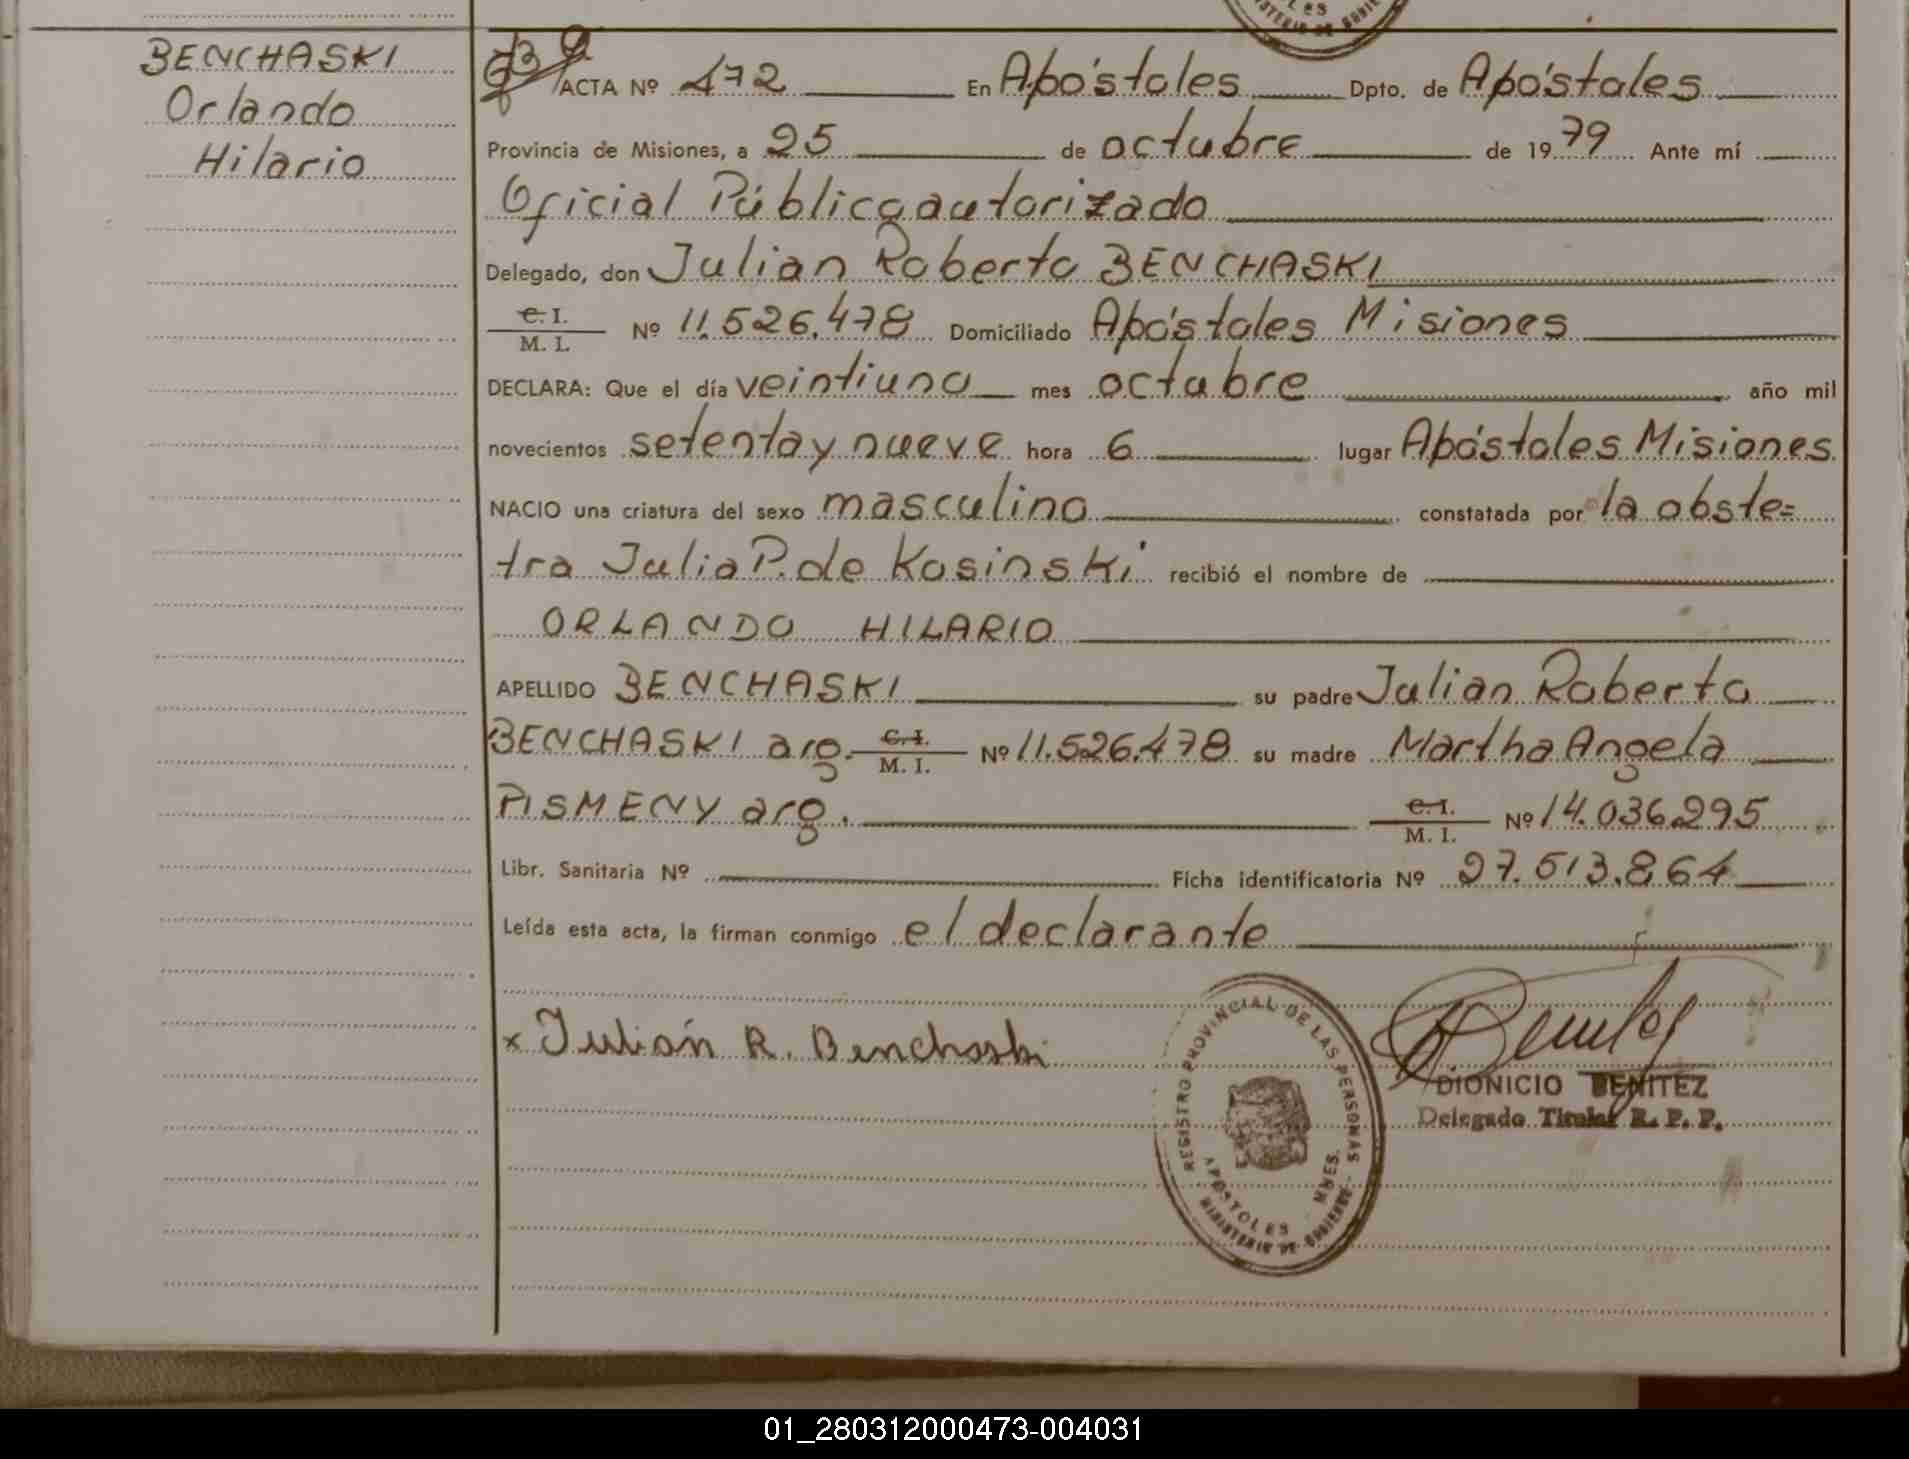 LES
MINISTERIO DE GOBIE
BENCHASKI
Orlando
Hilario
ACTA Nº 472 En Apóstoles Dpto. de Apóstoles
Provincia de Misiones, a 25 de octubre de 1979 Ante mí
Oficial Público autorizado
Delegado, don Julian Roberto BENCHASKI
C. I.
M. I. Nº 11.526.478 Domiciliado Apóstoles Misiones
DECLARA: Que el día veintiuno mes octubre año mil
novecientos setenta y nueve hora 6 lugar Apóstoles Misiones
NACIO una criatura del sexo masculino constatada por la obste=
tra Julia P. de Kosinski recibió el nombre de
ORLANDO HILARIO
APELLIDO BENCHASKI su padre Julian Roberto
BENCHASKI arg. C. I. M. I. Nº 11.526.478 su madre Martha Angela
PISMENY arg. C. I. M. I. Nº 14.036.295
Libr. Sanitaria Nº Ficha identificatoria Nº 27.513.864
Leída esta acta, la firman conmigo el declarante
x Julián R. Benchaski
REGISTRO PROVINCIAL DE LAS PERSONAS
APOSTOLES MNES.
MINISTERIO DE GOBIERNO
DIONICIO BENITEZ
Delegado Titular R. P. P.
01_280312000473-004031